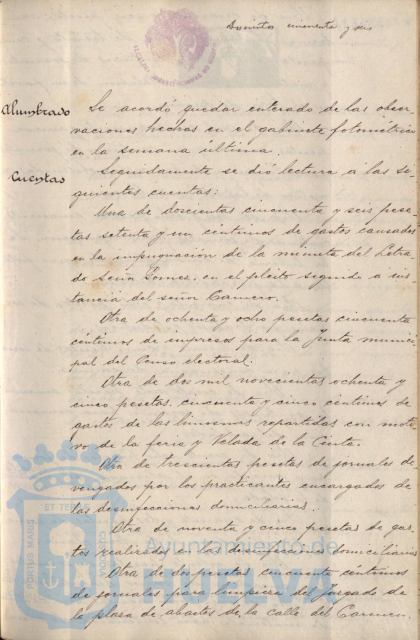 Doscientos cincuenta y seis
Alumbrado
Se acordó quedar enterado de las obser-
vaciones hechas en el gabinete fotométrico
en la semana última.
Cuentas
Seguidamente se dió lectura a las si-
guientes cuentas:
Una de doscientas cincuenta y seis pese-
tas setenta y un céntimos de gastos causados
en la impugnación de la minuta del Letra-
do Señor Gomez, en el pleito seguido a ins-
tancia del señor Carnero.
Otra de ochenta y ocho pesetas cincuenta
céntimos de impresos para la Junta munici-
pal del Censo electoral.
Otra de dos mil novecientas ochenta y
cinco pesetas, cincuenta y cinco céntimos de
gastos de las limosnas repartidas con moti-
vo de la feria y Velada de la Cinta.
Otra de trescientas pesetas de jornales de-
vengados por los practicantes encargados de
las desinfecciones domiciliarias.
Otra de noventa y cinco pesetas de gas-
tos realizados en las desinfecciones domiciliarias
Otra de dos pesetas cincuenta céntimos
de jornales para limpieza del juzgado de
la plaza de abastos de la calle del Carmen.
PORTUS MARIS
ET TERRÆ CUSTODIA
Ayuntamiento de
HUELVA